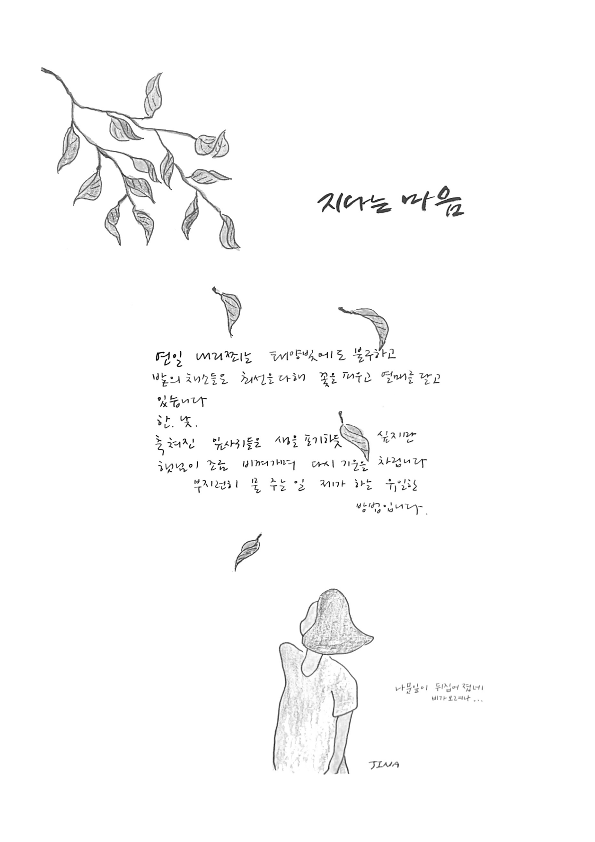 지나는 마음
연일 내리쬐는 태양빛에도 불구하고
밭의 채소들은 최선을 다해 꽃을 피우고 열매를 달고
있습니다
한. 낮.
축 쳐진 잎사귀들은 생을 포기하듯 싶지만
햇님이 조금 비껴가며 다시 기운을 차립니다
부지런히 물 주는 일 제가 하는 유일한
방법입니다.
나뭇잎이 뒤집어 졌네
비가 오려나...
JINA